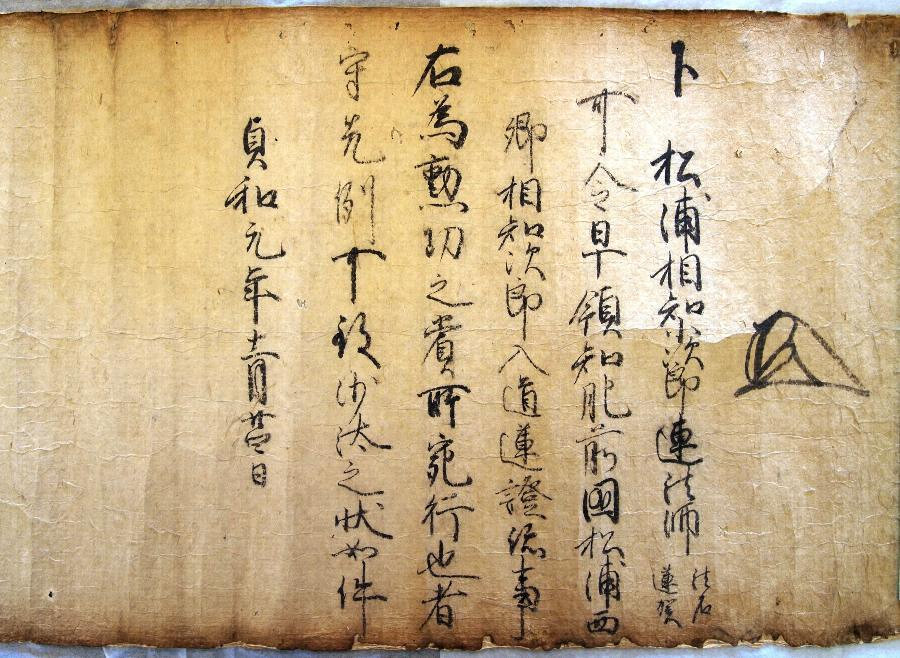 下 松浦相知次郎連法師 法名
蓮賀
可令早領知肥前國松浦西
郷相知次郎入道蓮證跡事
右為勲功之賞所宛行也者
守先例可致沙汰之状如件
貞和元年